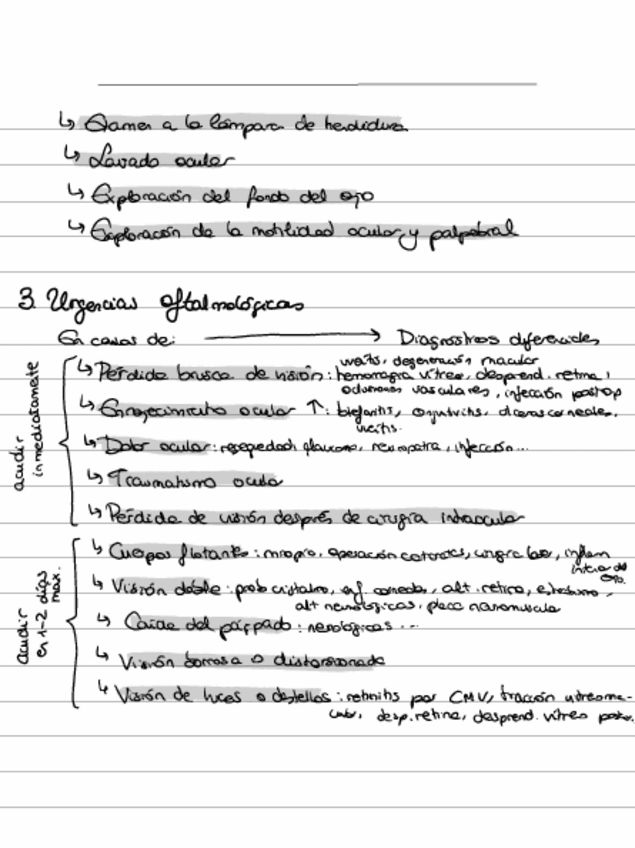 ↳ Examen a la lámpara de hendidura
↳ Lavado ocular
↳ Exploración del fondo del ojo
↳ Exploración de la motilidad ocular y palpebral
3. Urgencias oftalmológicas
En casos de: → Diagnósticos diferenciales
acudir inmediatamente
uveítis, degeneración macular
↳ Pérdida brusca de visión: hemorragia vítrea, desprend. retina,
oclusiones vasculares, infección postop
↳ Enrojecimiento ocular ↑: blefaritis, conjutivitis, úlceras corneales,
uveitis.
↳ Dolor ocular: sequedad, glaucoma, neuropatía, infección...
↳ Traumatismo ocular
↳ Pérdida de visión después de cirugía intraocular
acudir en 1-2 días max.
↳ Cuerpos flotantes: miopía, operación cataratas, cirugía láser, inflam
intra del ojo.
↳ Visión doble: prob cristalino, enf. corneales, alt. retina, estrabismo,
alt neurológicas, placa neuromuscular
↳ Caída del párpado: nerológicas...
↳ Visión borrosa o distorsionada
↳ Visión de luces o destellos: retinitis por CMV, tracción vitreoma-
cular, desp. retina, desprend. vítreo poster.